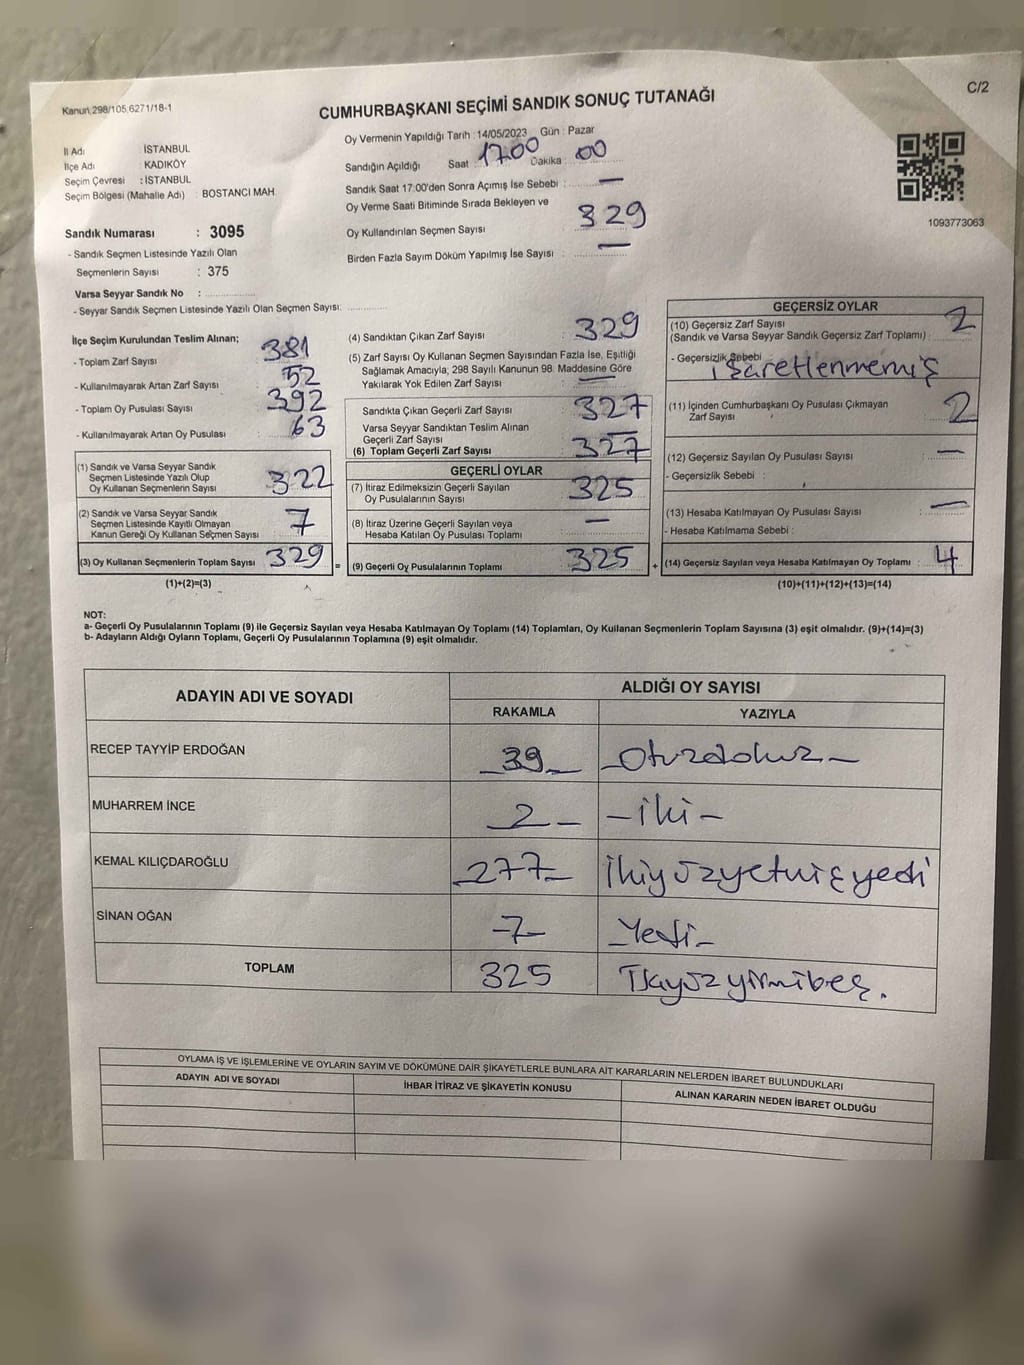 Kanun 298/105,6271/18-1
C/2
CUMHURBAŞKANI SEÇİMİ SANDIK SONUÇ TUTANAĞI
Oy Vermenin Yapıldığı Tarih : 14/05/2023 Gün : Pazar
İl Adı : İSTANBUL
İlçe Adı : KADIKÖY
Seçim Çevresi : İSTANBUL
Seçim Bölgesi (Mahalle Adı) : BOSTANCI MAH.
Sandığın Açıldığı Saat : 1700 Dakika : 00
Sandık Saat 17:00'den Sonra Açımış İse Sebebi : —
Oy Verme Saati Bitiminde Sırada Bekleyen ve
Oy Kullandırılan Seçmen Sayısı : 329
Birden Fazla Sayım Döküm Yapılmış İse Sayısı : —
1093773063
Sandık Numarası : 3095
- Sandık Seçmen Listesinde Yazılı Olan
Seçmenlerin Sayısı : 375
Varsa Seyyar Sandık No :
- Seyyar Sandık Seçmen Listesinde Yazılı Olan Seçmen Sayısı:
İlçe Seçim Kurulundan Teslim Alınan;
- Toplam Zarf Sayısı : 381
- Kullanılmayarak Artan Zarf Sayısı : 52
- Toplam Oy Pusulası Sayısı : 392
- Kullanılmayarak Artan Oy Pusulası : 63
(1) Sandık ve Varsa Seyyar Sandık
Seçmen Listesinde Yazılı Olup
Oy Kullanan Seçmenlerin Sayısı : 322
(2) Sandık ve Varsa Seyyar Sandık
Seçmen Listesinde Kayıtlı Olmayan
Kanun Gereği Oy Kullanan Seçmen Sayısı : 7
(3) Oy Kullanan Seçmenlerin Toplam Sayısı : 329
(1)+(2)=(3)
(4) Sandıktan Çıkan Zarf Sayısı : 329
(5) Zarf Sayısı Oy Kullanan Seçmen Sayısından Fazla İse, Eşitliği
Sağlamak Amacıyla, 298 Sayılı Kanunun 98. Maddesine Göre
Yakılarak Yok Edilen Zarf Sayısı : —
Sandıkta Çıkan Geçerli Zarf Sayısı : 327
Varsa Seyyar Sandıktan Teslim Alınan
Geçerli Zarf Sayısı : —
(6) Toplam Geçerli Zarf Sayısı : 327
GEÇERLİ OYLAR
(7) İtiraz Edilmeksizin Geçerli Sayılan
Oy Pusulalarının Sayısı : 325
(8) İtiraz Üzerine Geçerli Sayılan veya
Hesaba Katılan Oy Pusulası Toplamı : —
= (9) Geçerli Oy Pusulalarının Toplamı : 325
GEÇERSİZ OYLAR
(10) Geçersiz Zarf Sayısı 2
(Sandık ve Varsa Seyyar Sandık Geçersiz Zarf Toplamı) :
- Geçersizlik Sebebi : işaretlenmemiş
(11) İçinden Cumhurbaşkanı Oy Pusulası Çıkmayan
Zarf Sayısı : 2
(12) Geçersiz Sayılan Oy Pusulası Sayısı : —
- Geçersizlik Sebebi :
(13) Hesaba Katılmayan Oy Pusulası Sayısı : —
- Hesaba Katılmama Sebebi :
+ (14) Geçersiz Sayılan veya Hesaba Katılmayan Oy Toplamı : 4
(10)+(11)+(12)+(13)=(14)
NOT:
a- Geçerli Oy Pusulalarının Toplamı (9) ile Geçersiz Sayılan veya Hesaba Katılmayan Oy Toplamı (14) Toplamları, Oy Kullanan Seçmenlerin Toplam Sayısına (3) eşit olmalıdır. (9)+(14)=(3)
b- Adayların Aldığı Oyların Toplamı, Geçerli Oy Pusulalarının Toplamına (9) eşit olmalıdır.
ADAYIN ADI VE SOYADI ALDIĞI OY SAYISI
RAKAMLA YAZIYLA
RECEP TAYYİP ERDOĞAN _39_ _Otuzdokuz_
MUHARREM İNCE _2_ -iki-
KEMAL KILIÇDAROĞLU _277_ İkiyüzyetmişyedi
SİNAN OĞAN -7- _Yedi_
TOPLAM 325 Üçyüzyirmibeş.
OYLAMA İŞ VE İŞLEMLERİNE VE OYLARIN SAYIM VE DÖKÜMÜNE DAİR ŞİKAYETLERLE BUNLARA AİT KARARLARIN NELERDEN İBARET BULUNDUKLARI
ADAYIN ADI VE SOYADI İHBAR İTİRAZ VE ŞİKAYETİN KONUSU ALINAN KARARIN NEDEN İBARET OLDUĞU